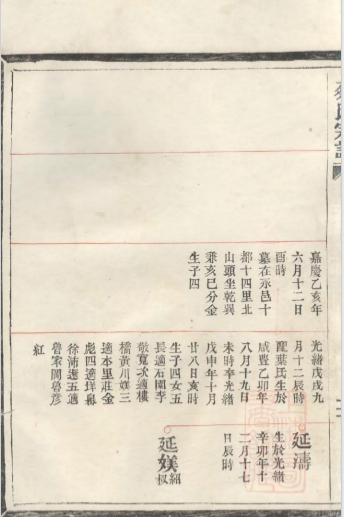 嘉慶乙亥年
六月十二日
酉時
墓在永邑十
都十四里北
山頭坐乾巽
兼亥巳分金
生子四
光緒戊戌九
月十二辰時
配葉氏生於
咸豐乙卯年
八月十九日
未時卒光緒
戊申年十月
廿八日亥時
生子四女五
長適石圍李
敬寬次適樓
橋黃川嫁三
適本里莊金
彪四適垟
徐沛選五適
魯
紅
延濤
生於光緒
辛卯年十
二月十七
日辰時
延媄
紹
叔